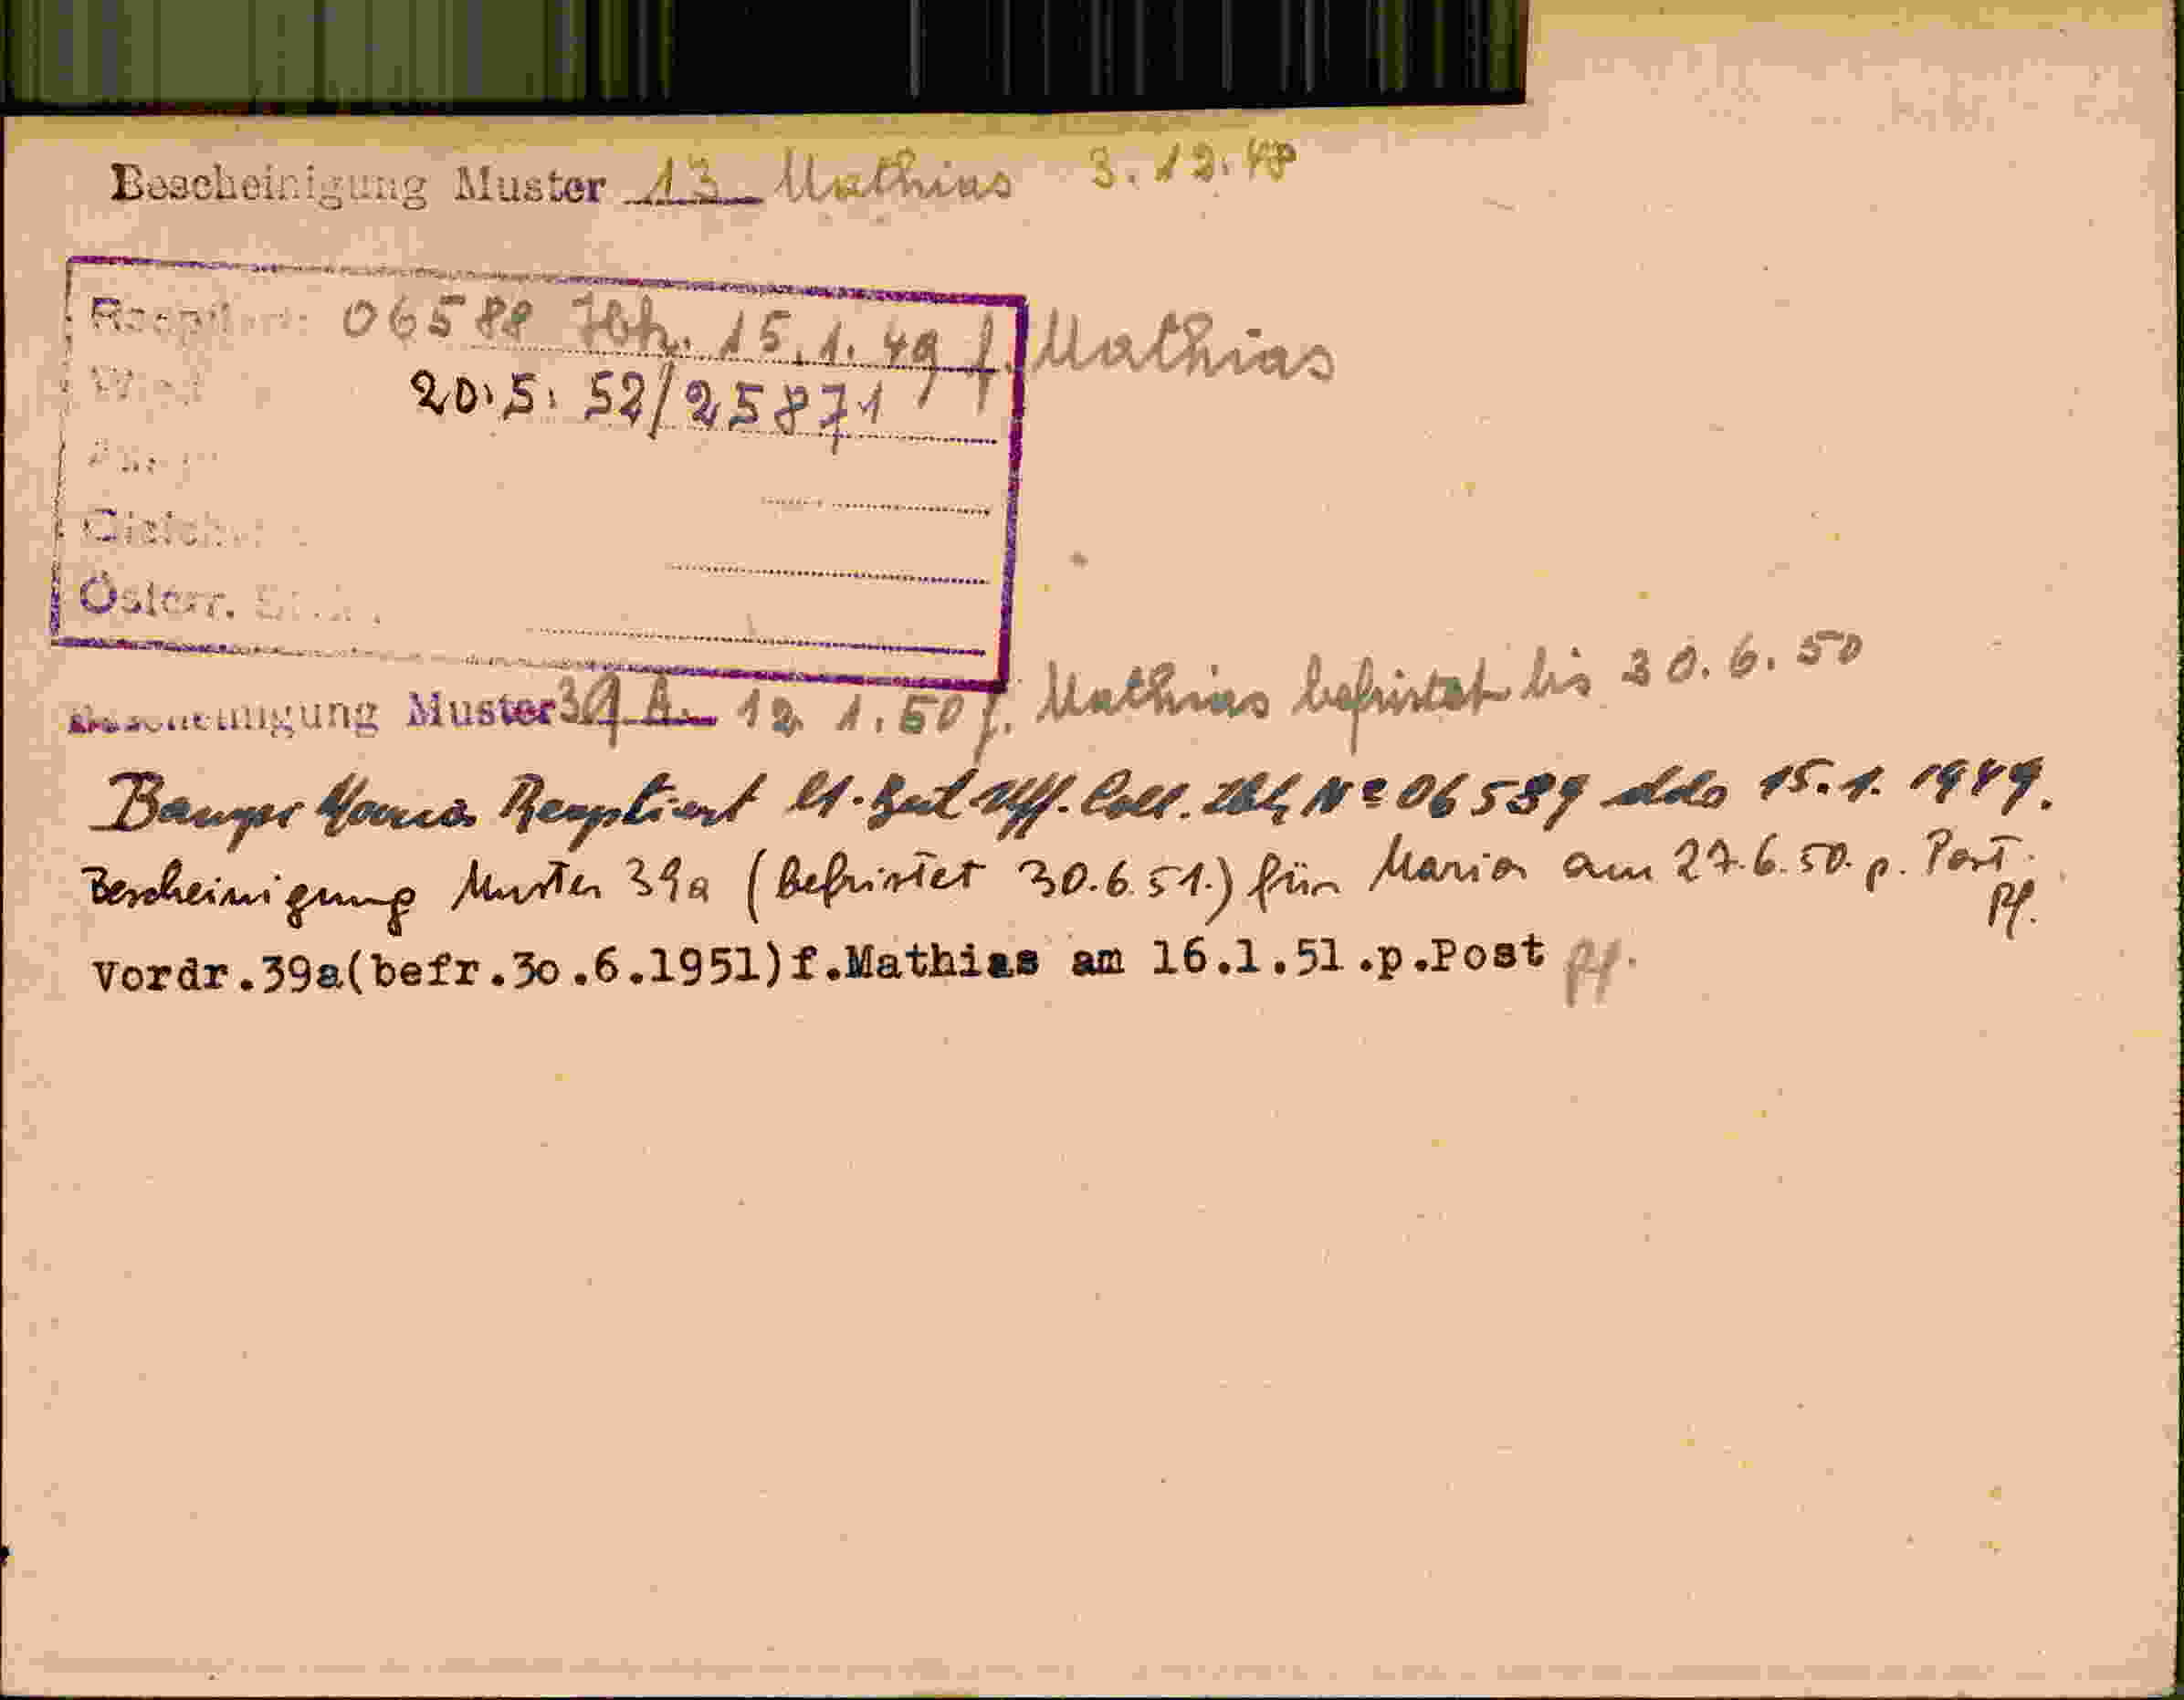 Bescheinigung Muster 13 Mathias 3.12.48
06588 Ibk. 15.1.49 f. Mathias
20.5.52/25871
Österr.
Bescheinigung Muster 39 A. 12.1.50 f. Mathias befristet bis 30.6.50
Maria Reoptiert lt. Ibk Nº 06589 ddo 15.1.1949.
Bescheinigung Muster 39a (befristet 30.6.51.) für Maria am 27.6.50. p. Post.
Pf.
Vordr.39a(befr.3o.6.1951)f.Mathias am 16.1.51.p.Post pf.